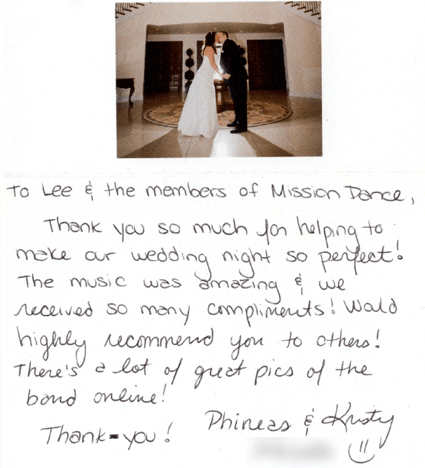 To Lee & the members of Mission Dance,
Thank you so much for helping to
make our wedding night so perfect!
The music was amazing & we
received so many compliments! Would
highly recommend you to others!
There's a lot of great pics of the
band online!
Phineas & Kristy
Thank-you!